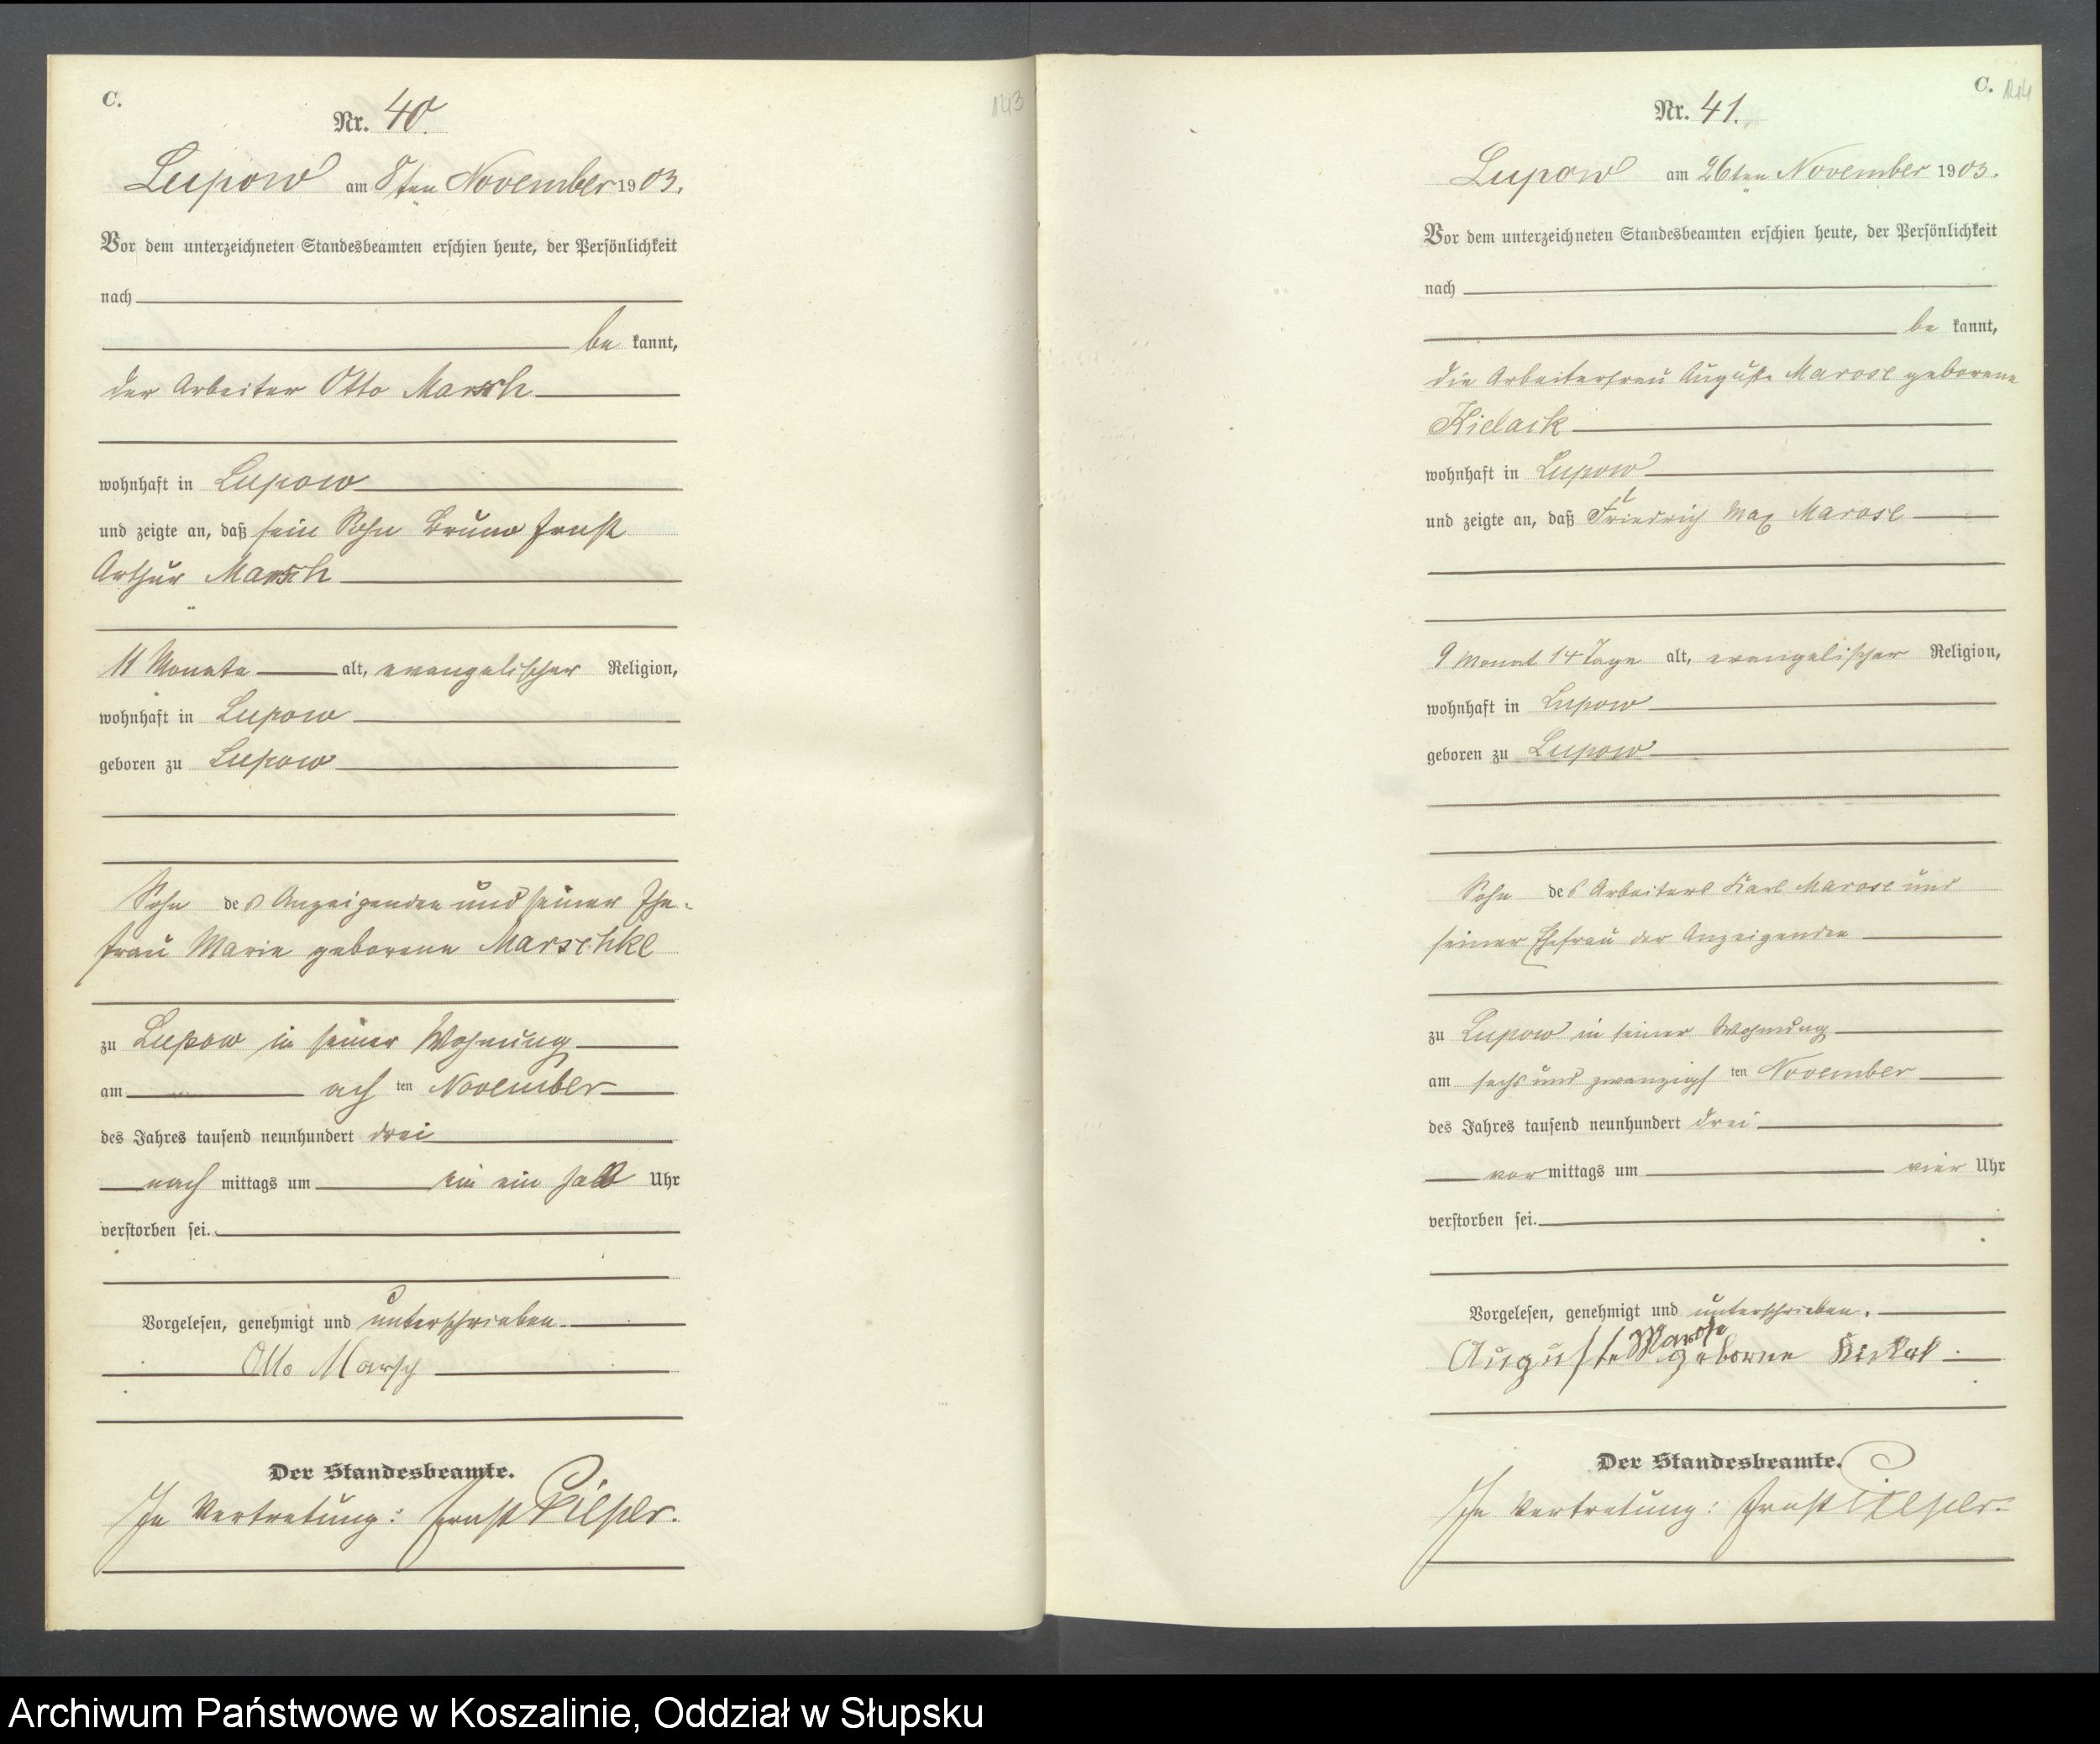 C.
143
Nr. 40.
Lupow am 8ten November 1903.
Vor dem unterzeichneten Standesbeamten erschien heute, der Persönlichkeit
nach
be kannt,
der Arbeiter Otto Marsch
wohnhaft in Lupow
und zeigte an, daß sein Sohn Bruno Ernst
Arthur Marsch
11 Monate alt, evangelischer Religion,
wohnhaft in Lupow
geboren zu Lupow
Sohn des Anzeigenden und seiner Ehe-
frau Marie geborene Marschke
zu Lupow in seiner Wohnung
am ach ten November
des Jahres tausend neunhundert drei
nach mittags um ein ein halb Uhr
verstorben sei.
Vorgelesen, genehmigt und unterschrieben
Otto Marsch
Der Standesbeamte.
In Vertretung: Ernst
C. 144
Nr. 41.
Lupow am 26ten November 1903.
Vor dem unterzeichneten Standesbeamten erschien heute, der Persönlichkeit
nach
be kannt,
die Arbeiterfrau Auguste Marose geborene
Kielack
wohnhaft in Lupow
und zeigte an, daß Friedrich Max Marose
9 Monat 14 Tage alt, evangelischer Religion,
wohnhaft in Lupow
geboren zu Lupow
Sohn des Arbeiters Karl Marose und
seiner Ehefrau der Anzeigenden
zu Lupow in seiner Wohnung
am sechs und zwanzigs ten November
des Jahres tausend neunhundert drei
vor mittags um vier Uhr
verstorben sei.
Vorgelesen, genehmigt und unterschrieben.
Auguste Marose geborne
Der Standesbeamte.
In Vertretung: Ernst
Archiwum Państwowe w Koszalinie, Oddział w Słupsku